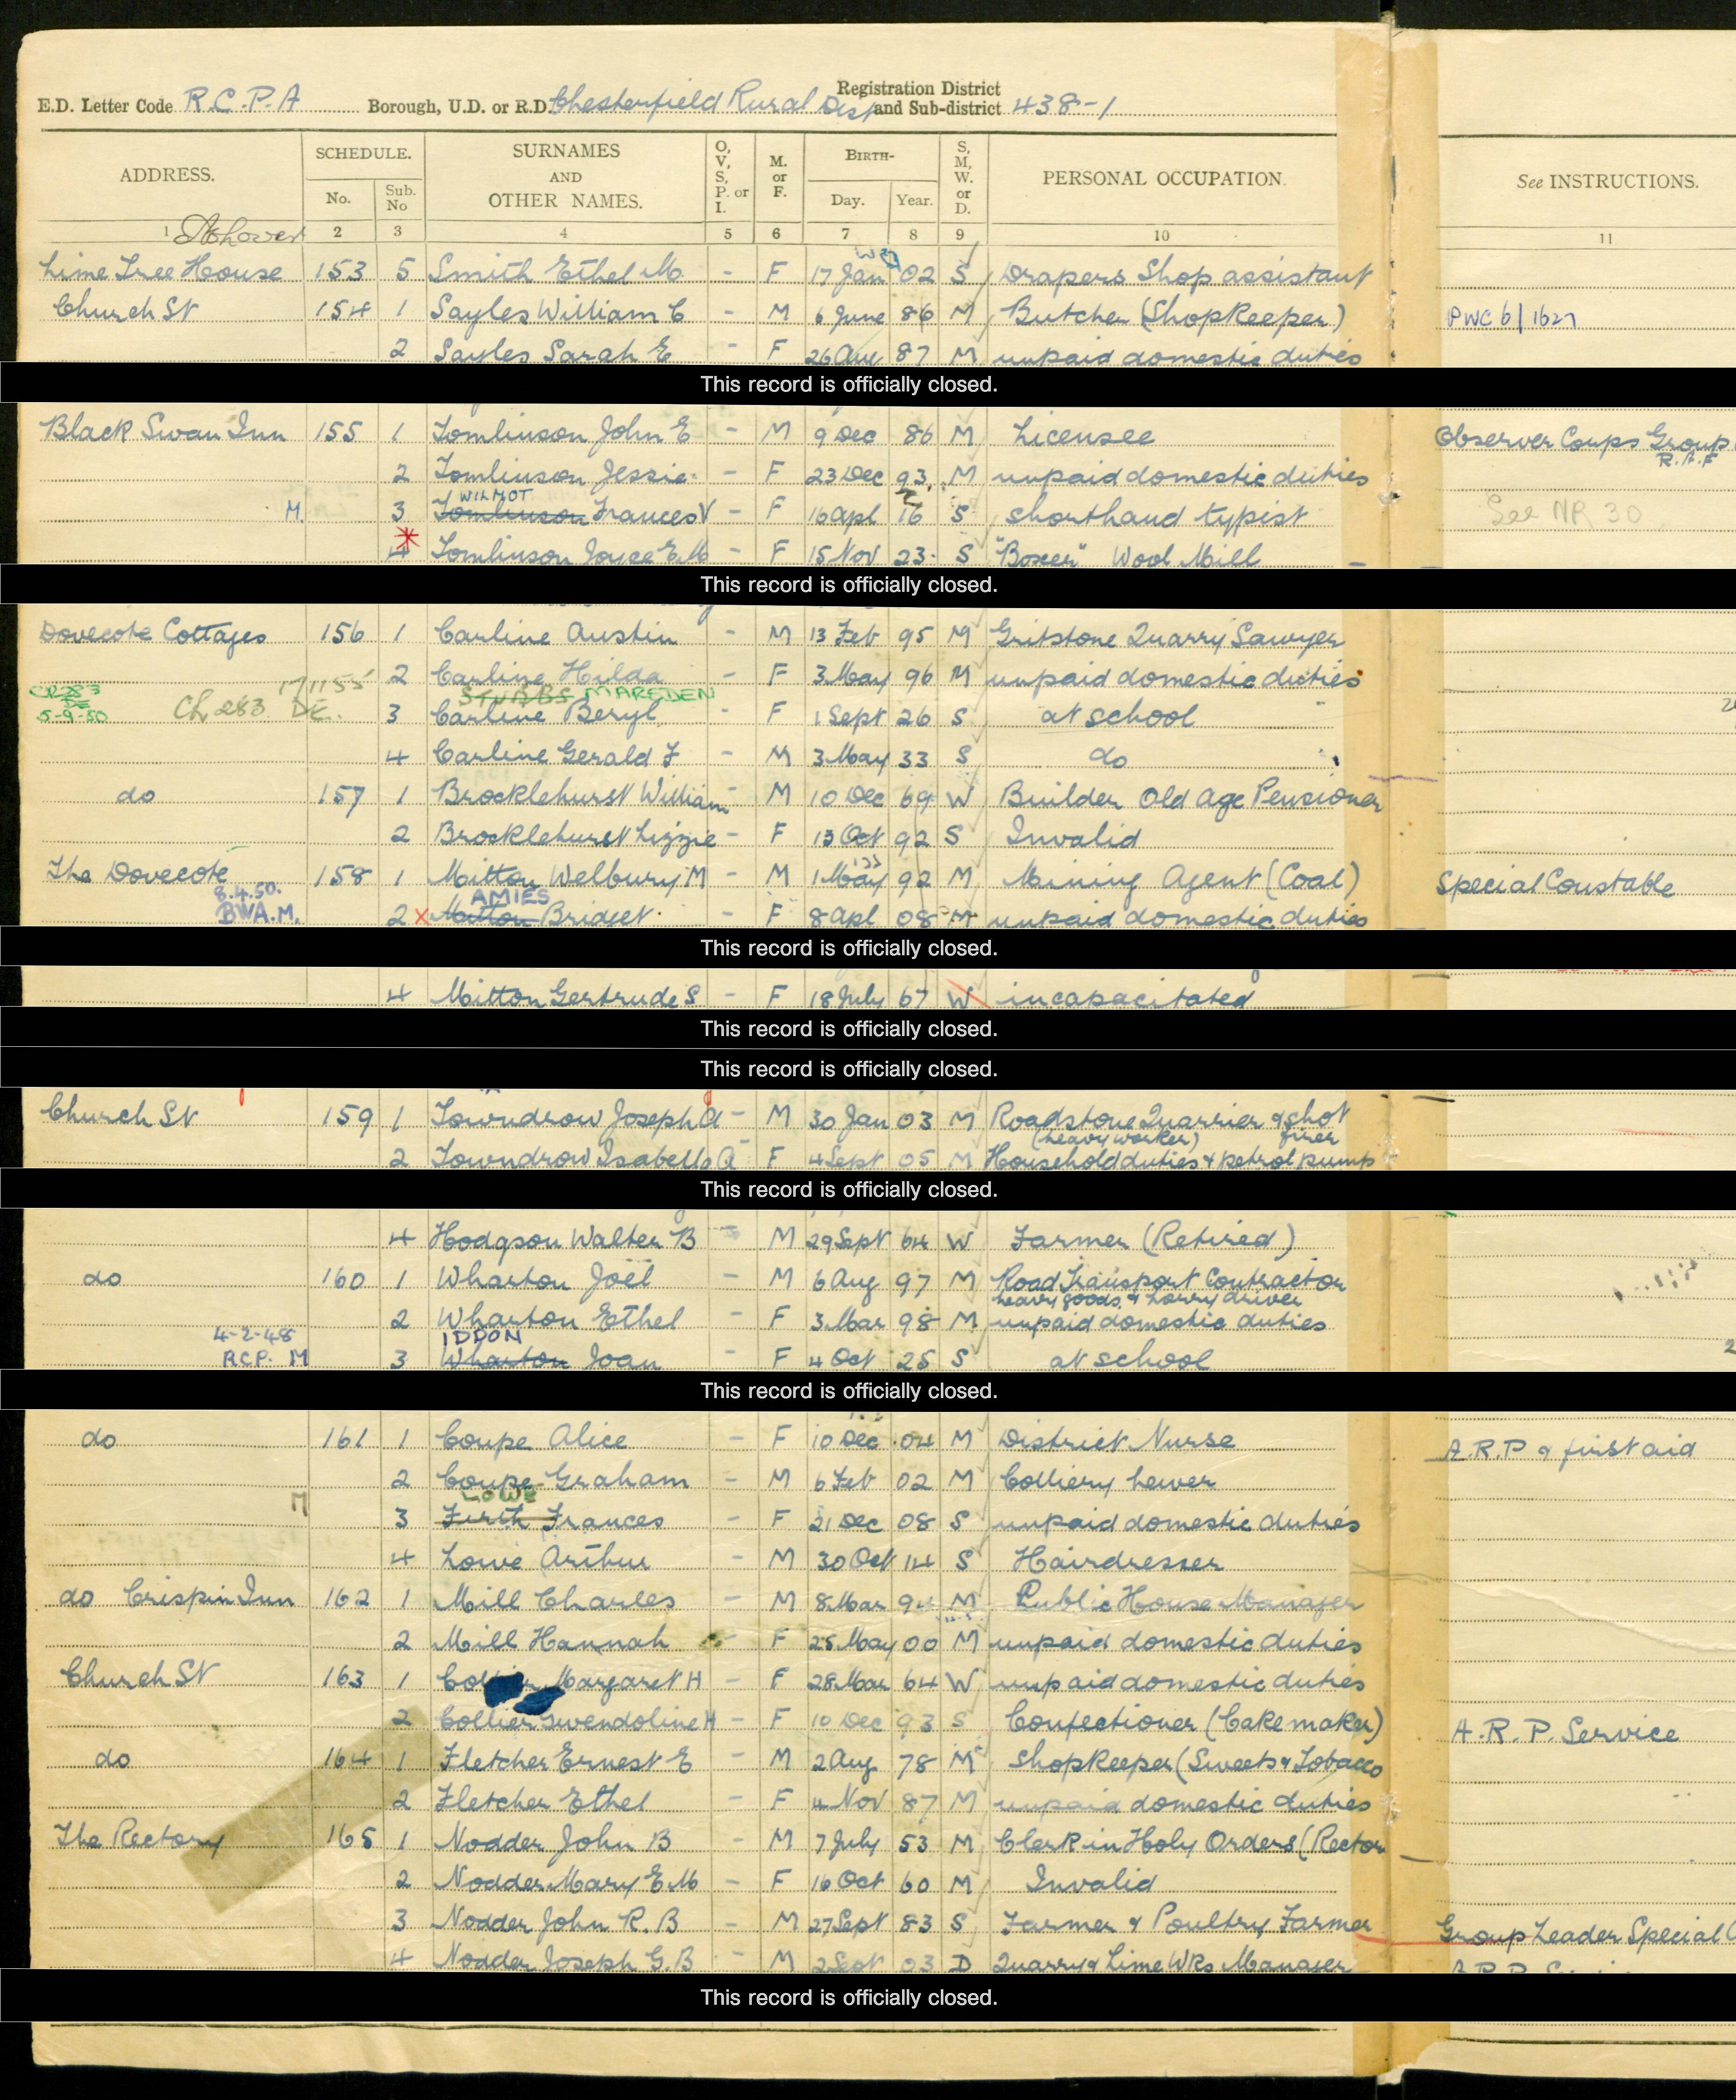 Registration District
E.D. Letter Code R.C.P.A Borough, U.D. or R.D. Chesterfield Rural Dist and Sub-district 438-1
ADDRESS. SCHEDULE. No. Sub. No SURNAMES AND OTHER NAMES. O, V, S, P. or I. M. or F. BIRTH- Day. Year. S, M, W. or D. PERSONAL OCCUPATION. See INSTRUCTIONS.
1 Ashover 2 3 4 5 6 7 8 9 10 11
Lime Tree House 153 5 Smith Ethel M - F 17 Jan 02 S Drapers Shop assistant
Church St 154 1 Sayles William C - M 6 June 86 M Butcher (Shopkeeper) PWC 6/1627
2 Sayles Sarah E - F 26 Aug 87 M unpaid domestic duties
This record is officially closed.
Black Swan Inn 155 1 Tomlinson John E - M 9 Dec 86 M Licensee Observer Corps Group
R.A.F
2 Tomlinson Jessie - F 23 Dec 93 M unpaid domestic duties
WILMOT
M. 3 Tomlinson Frances V - F 16 Apl 16 S shorthand typist See NR 30
4 Tomlinson Joyce E M - F 15 Nov 23 S "Boxer" Wool Mill
This record is officially closed.
Dovecote Cottages 156 1 Carline Austin - M 13 Feb 95 M Gritstone Quarry Sawyer
2 Carline Hilda - F 3 May 96 M unpaid domestic duties
CR283 DE 5-9-50 Ch 283 DE. 171155 STUBBS MARSDEN
3 Carline Beryl - F 1 Sept 26 S at school
4 Carline Gerald F - M 3 May 33 S do
do 157 1 Brocklehurst William - M 10 Dec 69 W Builder Old Age Pensioner
2 Brocklehurst Lizzie - F 13 Oct 92 S Invalid
The Dovecote 158 1 Mitton Welbury M - M 1 May 92 M Mining Agent (Coal) Special Constable
8.4.50. AMIES
BWA.M. 2 x Mitton Bridget - F 8 Apl 08 M unpaid domestic duties
This record is officially closed.
4 Mitton Gertrude S - F 18 July 67 W incapacitated
This record is officially closed.
This record is officially closed.
Church St 159 1 Towndrow Joseph A - M 30 Jan 03 M Roadstone Quarrier & shot
(heavy worker) firer
2 Towndrow Isabella A - F 4 Sept 05 M Household duties & petrol pump
This record is officially closed.
4 Hodgson Walter B - M 29 Sept 64 W Farmer (Retired)
do 160 1 Wharton Joel - M 6 Aug 97 M Road Transport Contractor
heavy goods & lorry driver
2 Wharton Ethel - F 3 Mar 98 M unpaid domestic duties
4-2-48 IDDON
R.C.P. M 3 Wharton Joan - F 4 Oct 25 S at school
This record is officially closed.
do 161 1 Coupe Alice - F 10 Dec 04 M District Nurse A.R.P & first aid
2 Coupe Graham - M 6 Feb 02 M Colliery hewer
LOWE
M 3 Firth Frances - F 21 Dec 08 S unpaid domestic duties
4 Lowe Arthur - M 30 Oct 14 S Hairdresser
do Crispin Inn 162 1 Mill Charles - M 8 Mar 94 M Public House Manager
2 Mill Hannah - F 25 May 00 M unpaid domestic duties
Church St 163 1 Margaret H - F 28 Mar 64 W unpaid domestic duties
2 Collier Gwendoline H - F 10 Dec 93 S Confectioner (Cake maker) A.R.P. Service
do 164 1 Fletcher Ernest E - M 2 Aug 78 M Shopkeeper (Sweets & Tobacco
2 Fletcher Ethel - F 4 Nov 87 M unpaid domestic duties
The Rectory 165 1 Nodder John B - M 7 July 53 M Clerk in Holy Orders (Rector
2 Nodder Mary E M - F 16 Oct 60 M Invalid
3 Nodder John R. B - M 27 Sept 83 S Farmer & Poultry Farmer Group Leader Special
4 Nodder Joseph G. B - M 2 Sept 03 D Quarry & Lime Wks Manager
This record is officially closed.